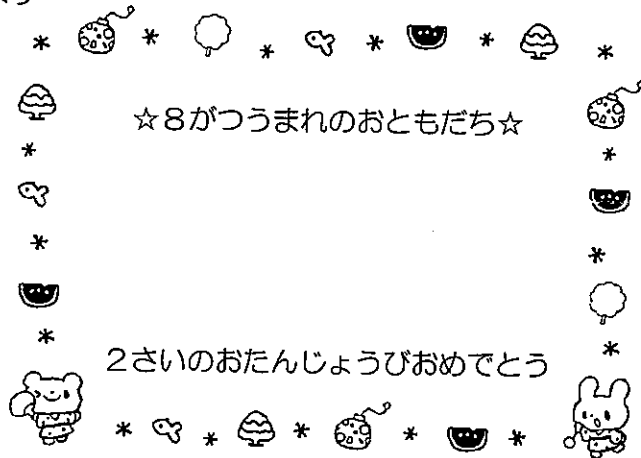 ☆8がつうまれのおともだち☆
2さいのおたんじょうびおめでとう